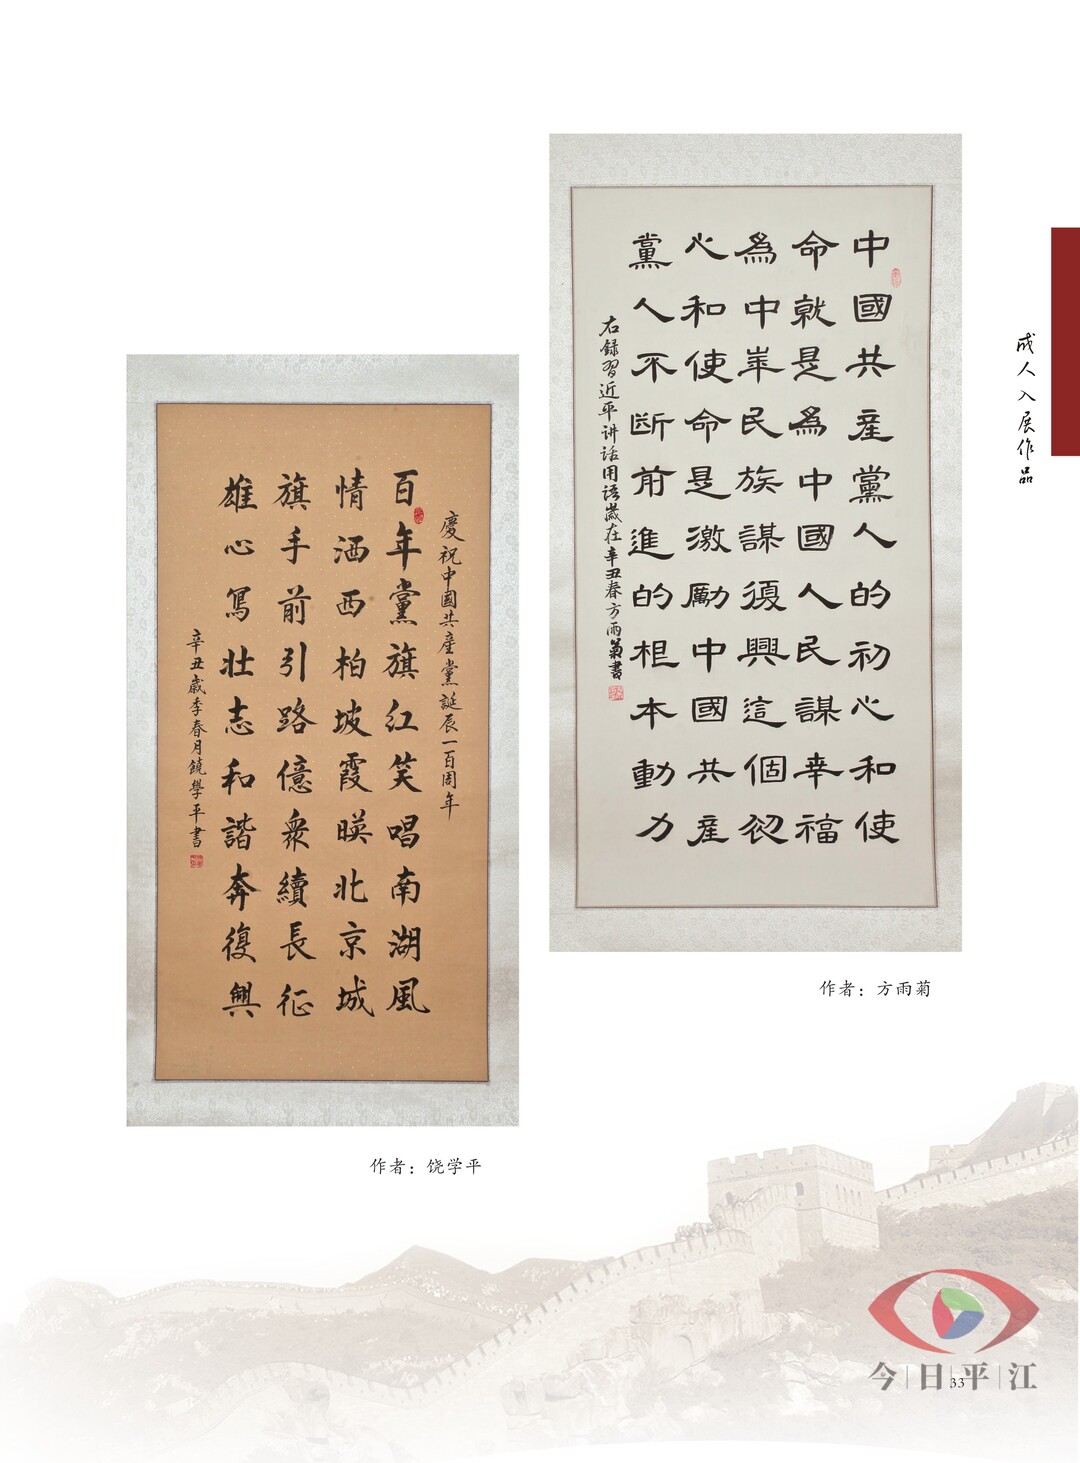 成人入展作品
中國共産黨人的初心和使
命就是爲中國人民謀幸福
爲中華民族謀復興這個初
心和使命是激勵中國共産
黨人不斷前進的根本動力
右録習近平讲話用語歲在辛丑春方雨菊書
作者：方雨菊
慶祝中國共産黨誕辰一百周年
百年黨旗红笑唱南湖風
情洒西柏坡霞暎北京城
旗手前引路億衆續長征
雄心寫壮志和諧奔復興
辛丑歲季春月饒學平書
作者：饶学平
今日平江
33